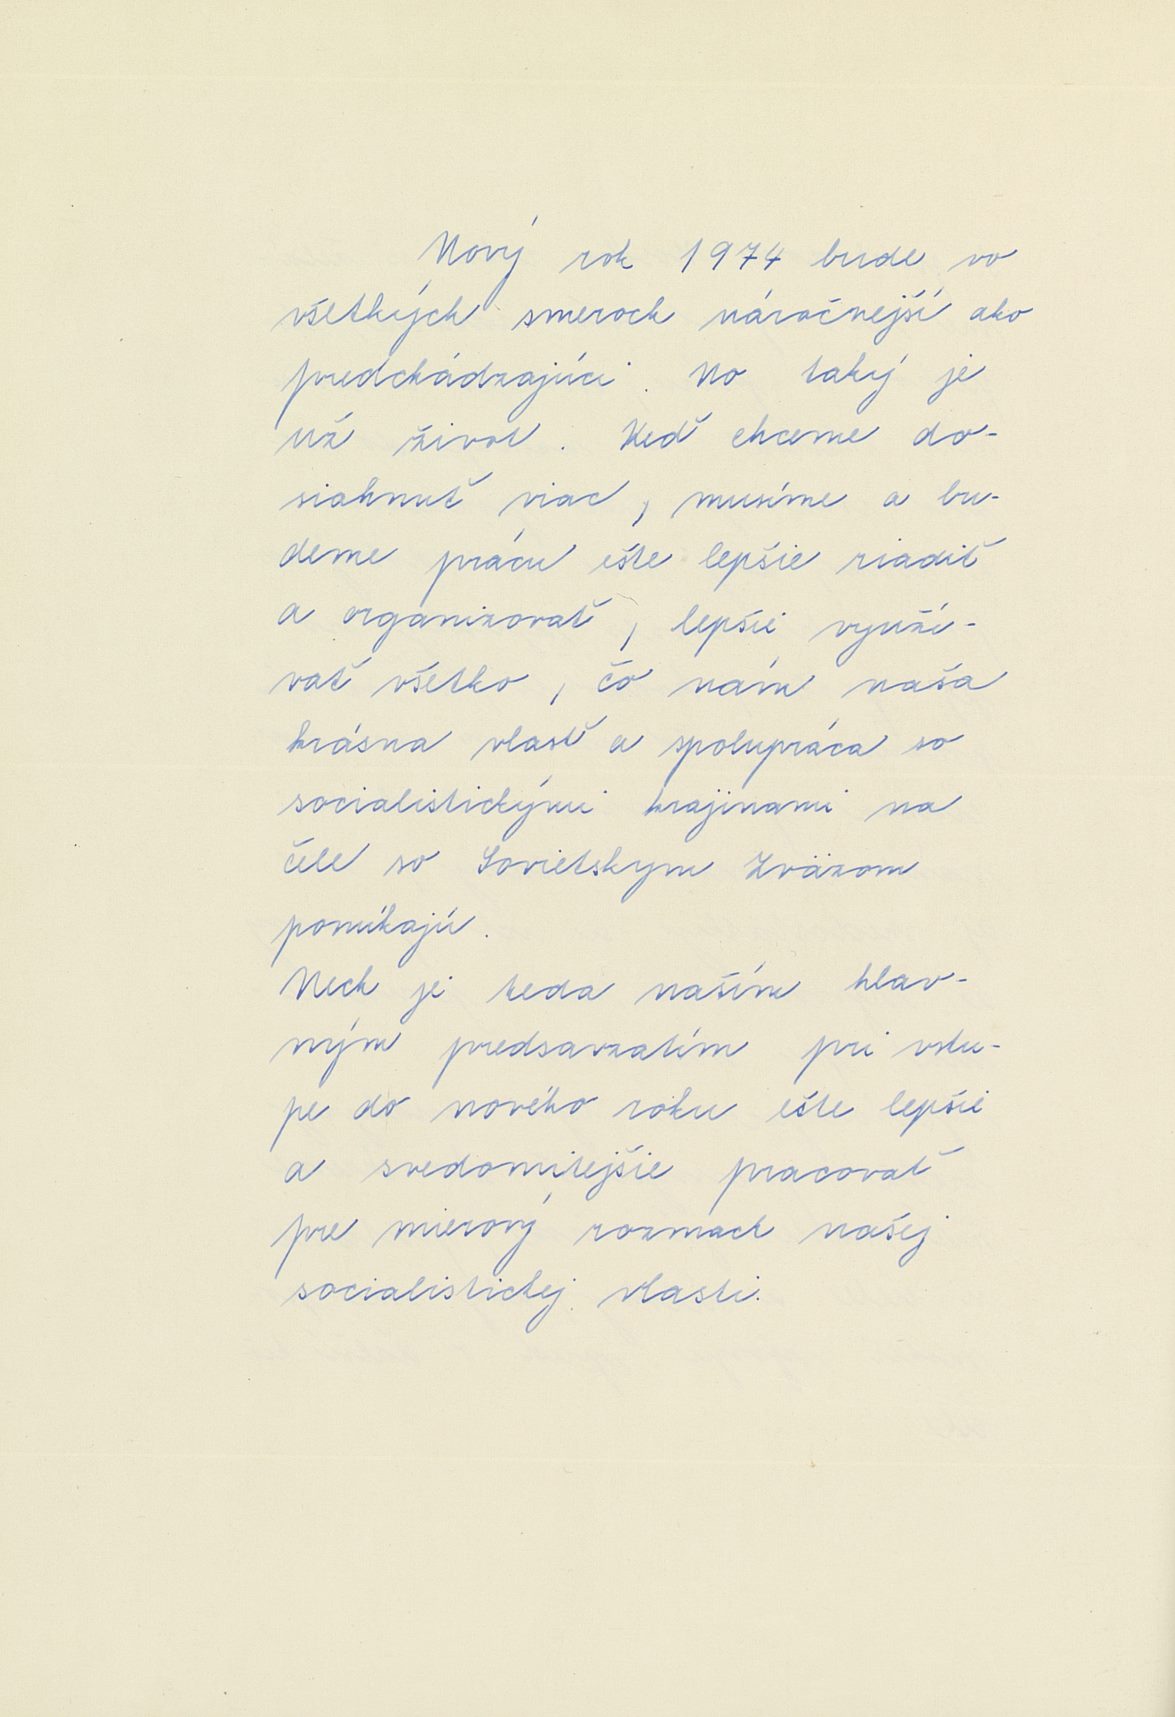 Nový rok 1974 bude vo
všetkých smeroch náročnejší ako
predchádzajúci. No taký je
už život. Keď chceme do-
siahnuť viac, musíme a bu-
deme prácu ešte lepšie riadiť
a organizovať, lepšie využí-
vať všetko, čo nám naša
krásna vlasť a spolupráca so
socialistickými krajinami na
čele so Sovietskym Zväzom
ponúkajú.
Nech je teda naším hlav-
ným predsavzatím pri vstu-
pe do nového roku ešte lepšie
a svedomitejšie pracovať
pre mierový rozmach našej
socialistickej vlasti.